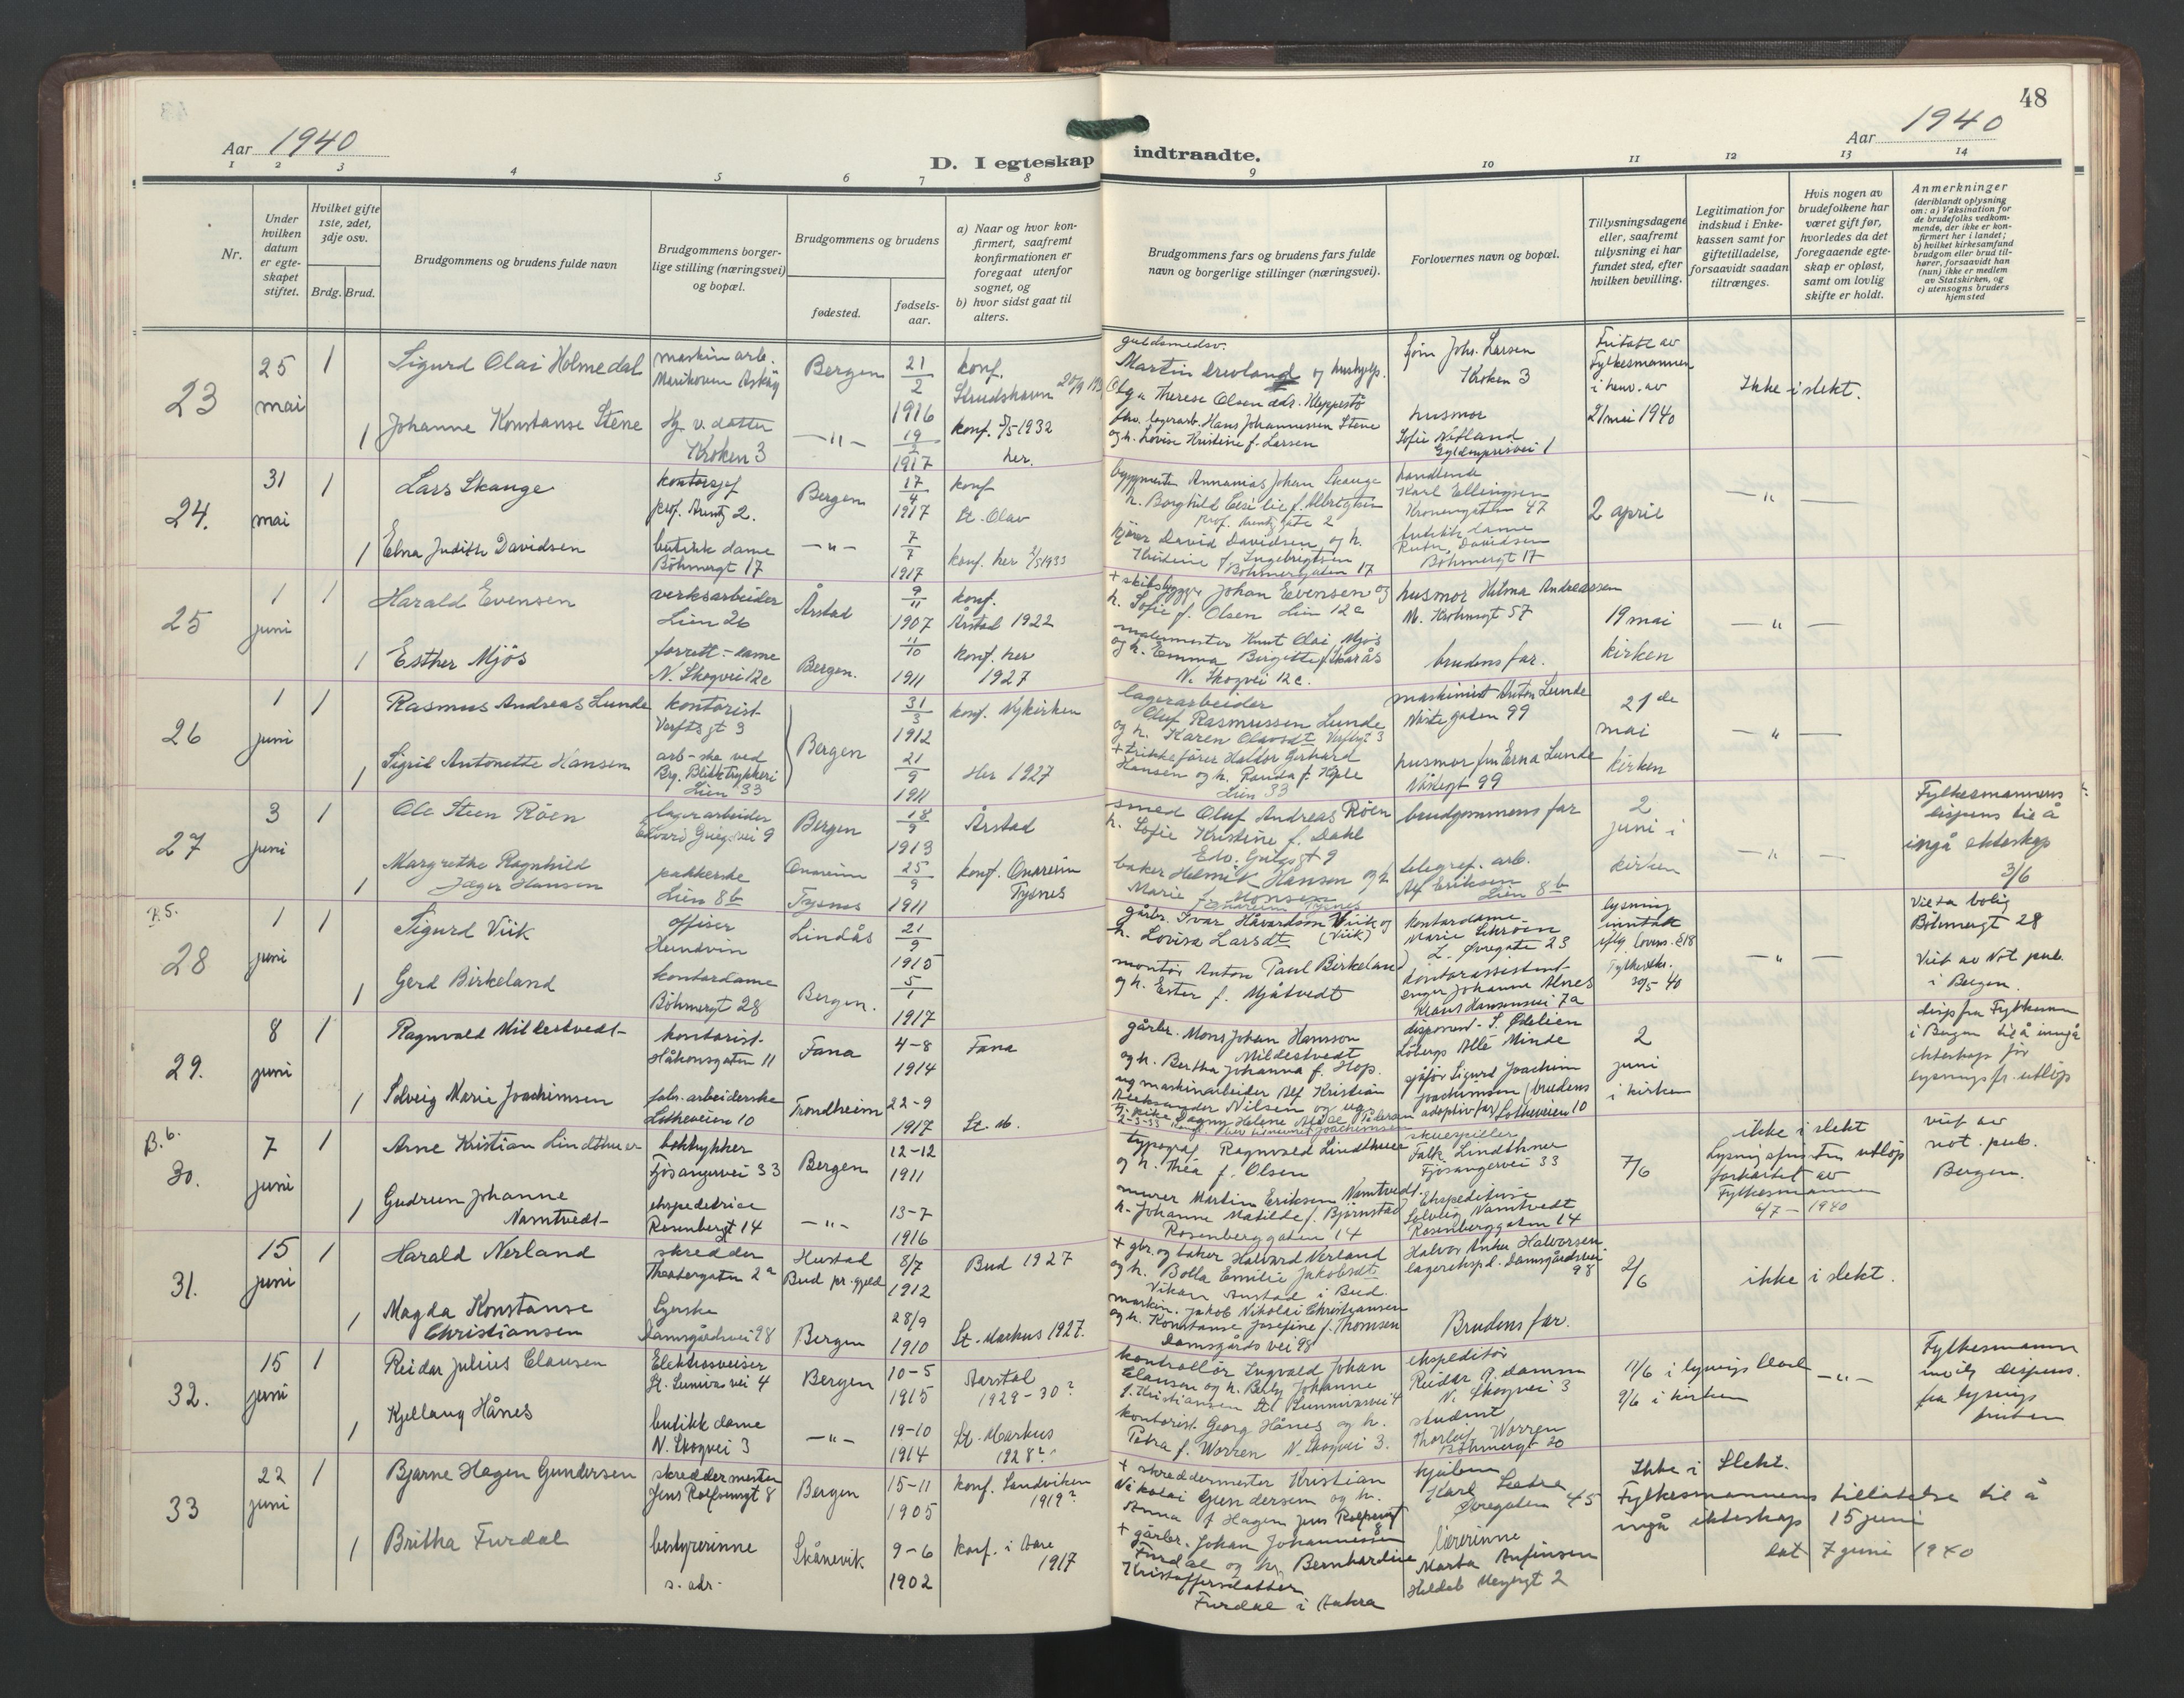 48
Aar 1940
D. I egteskap indtraadte.
Aar 1940
1 2 3 4 5 6 7 8 9 10 11 12 13 14
Nr.
Under hvilken datum er egteskapet stiftet.
Hvilket gifte 1ste, 2det, 3dje osv.
Brdg. Brud.
Brudgommens og brudens fulde navn
Brudgommens borgerlige stilling (næringsvei) og bopæl.
Brudgommens og brudens
fødested.
fødselsaar.
a) Naar og hvor konfirmert, saafremt konfirmationen er foregaat utenfor sognet, og
b) hvor sidst gaat til alters.
Brudgommens fars og brudens fars fulde navn og borgerlige stillinger (næringsvei).
Forlovernes navn og bopæl.
Tillysningsdagene eller, saafremt tillysning ei har fundet sted, efter hvilken bevilling.
Legitimation for indskud i Enkekassen samt for giftetilladelse, forsaavidt saadan tiltrænges.
Hvis nogen av brudefolkene har været gift før, hvorledes da det foregaaende egteskap er opløst, samt om lovlig skifte er holdt.
Anmerkninger
(deriblandt oplysning om: a) Vaksination for de brudefolks vedkommende, der ikke er konfirmert her i landet;
b) hvilket kirkesamfund brudgom eller brud tilhører, forsaavidt han (hun) ikke er medlem av Statskirken, og
c) utensogns bruders hjemsted
23
25 mai
1
Sigurd Olai Holmedal
maskinarb.
Askøy
Bergen
21/2 1916
konf.
Strudshavn
guldsmedsv.
Martin
Olga Therese Olsen adr. Kleppestø
Johs. Larsen
Kroken 3
Fritatt av
Fylkesmannen
i henv. av
21 mai 1940
Ikke i slekt.
1
Johanne Konstanse Stene
Hj. v. datter
Kroken 3
— " —
19/2 1917
konf. 1/5 1932
her.
fhv. lagerarb. Hans Johannessen Stene
og h. Lovise Kristine f. Larsen
husmor
Sofie
24.
31 mai
1
Lars Skauge
kontorsjef
prof. Arentz 2.
Bergen
17/4 1917
konf
St. Olav
byggmester Annanias Johan Skauge
h. Borghild Elsi
prof. Arentz gate 2
handlende
Karl Ellingsen
Kroneng­aten 47
2 april
— " —
1
Elna Judith Davidsen
butikkdame
Böhmergt 17
— " —
7/7 1917
konf. her 2/5 1933
David Davidsen og h.
Kristine f Ingebrigtsen
Böhmergaten 17
butikkdame
Davidsen
Böhmergt 17
25
1 juni
1
Harald Evensen
verksarbeider
Lien 26
Årstad
9/11 1907
konf.
Årstad 1922
+ skibsbygger Johan Evensen og
h. Sofie f. Olsen Lien 12c
husmor Hilma Andreassen
M. Krohnsgt 57
19 mai
kirken
— " —
1
Esther Mjös
forrett.-dame
N. Skogvei 12c
Bergen.
11/10 1911
konf. her
1927
malermester Knut Olai Mjös
og h. Emma Birgitte f. Skarås
N. Skogvei 12c.
brudens far.
26
1 juni
1
Rasmus Andreas Lunde
kontorist
Verftsgt 3
Bergen
31/3 1912
konf. Nykirken
lagerarbeider
Oluf Rasmussen Lunde
og h. Karen Olavsdt Verftsgt 3
maskinist Anton Lunde
Nöstegaten 99
21 de
mai
kirken
— " —
1
Sigrid Antonette Hansen
arb-ske ved
Brg. Blikktrykkeri
Lien 33
21/9 1911
Her 1927
+ trikkefører Halfdor Gerhard
Hansen og h. Randa f.
Lien 33
husmor fru Erna Lunde
Nöstegt 99
27
3 juni
1
Ole Steen Röen
lagerarbeider
Edvard Griegsvei 9
Bergen
18/9 1913
Årstad
smed Oluf Andreas Röen
h. Sofie Kristine f. Dahl
Edv. Griegsgt 9
brudgommens far
2
juni i
kirken
— " —
Fylkesmannens
dispens til å
ingå ekteskap
3/6
1
Margrethe Ragnhild
Jæger Hansen
pakkerske
Lien 8b
Onareim
Tysnes
25/9 1911
konf. Onareim
Tysnes
baker Helmik Hansen og h
Marie f. Monsen
telegraf. arb.
Alf Eriksen
Lien 8b
28
1 juni
1
Sigurd Viik
offiser
Lindås
21/9 1915
gårbr. Ivar Håvardson Viik og
(Viik)
h. Lovisa Larsdt
kontordame
Marie
L. Øvregate 23
lysning
inntatt
iflg. lovens § 18
Fylkesktr.
30/5 40
— " —
Vielsa bolig
Böhmergt 28
Viet av Not. pub.
i Bergen.
1
Gerd Birkeland
kontordame
Böhmergt 28
Bergen.
5/1 1917
montör Anton Paul Birkeland
og h. Ester f. Mjåtvedt
kontorassistent
Johanne Alnes
Klaus Hanssensvei 7a
29.
8 juni
1
Ragnvald Mildestvedt
kontorist
Håkonsgaten 11
Fana
4-8 1914
Fana
gårbr. Mons Johan Hansson
Mildestvedt
og h. Bertha Johanna f. Hop.
disponent S. Ødelien
Löbergs Allé Minde
2
juni
i kirken
disp fra Fylkesmann
i Bergen til å inngå
ekteskap før
lysningsfr. utlöp
1
Solveig Marie Joachimsen
fabr. arbeiderske
Lotheveien 10
Trondheim
22-9 1917
St. M.
ug maskinarbeider Alf Kristian
Aleksander Nilsen og ug
pike Dagny Helene
sjåfør Sigurd Joachim
Joachimsen (brudens
adoptivfar) Lotheveien 10
30.
7 juni
1
Arne Kristian Lindthner
boktrykker
Fjösangervei 33
Bergen
12-12 1911
typograf Ragnvald Lindthner
og h. Thea f. Olsen
skuespiller
Falk Lindthner
Fjösangervei 33
7/6
ikke i slekt
Lysningsfristen utlöp
forkortet av
Fylkesmannen
6/7 - 1940
viet av
not. pub.
Bergen.
1
Gudrun Johanne
Namtvedt
ekspeditrise
Rosenbergt 14
— " —
13-7 1916
murer Martin Eriksen Namtvedt
h. Johanne Matilde f. Björnstad
Rosenberggaten 14
Ekspeditrise
Solveig Namtvedt
Rosenberggaten 14
31.
15 juni
1
Harald Nerland
skredder
Theatergaten 2a
Hustad
Bud pr.gjeld
8/7 1912
Bud 1927
+ gbr. og baker Halvard Nerland
og h. Bolla Emilie Jakobsdt
Vikan i Bud.
Halvor Anker Halvorsen
lagerekspd. Damsgårdsvei
98
2/6
ikke i slekt.
1
Magda Konstanse
Christiansen
Syerske
Damsgårdsvei 98
Bergen
28/9 1910
St. Markus 1927.
maskin. Jakob Nikolai Christiansen
og h. Konstanse Josefine f. Thomsen
Damsgårdsvei 98
Brudens far.
32.
15 juni
1
Reidar Julius Clausen
Elektrosveiser
St. Sunivas vei 4
Bergen
10-5 1915
Aarstad
1929-30?
kontrollör Ingvald Johan
Clausen og h. Berly Johanne
f. Kristiansen St. Sunnivasvei 4
ekspeditör
Reidar P. Damm
N. Skogvei 3
11/6 i lysnings
9/6 i kirken
— " —
Fylkesmann
dispens.
fra lysnings
fristen
1
Kjellaug Hånes
butikkdame
N. Skogvei 3
— " —
19-10 1914
St. Markus
1928?
kontorist Georg Hånes og h.
Petra f. Worren N. Skogvei 3.
student
Thorleif Worren
Böhmergt 20
33
22 juni
1
Bjarne Hagen Gundersen
skreddermester
Jens Rolfsensgt 8
Bergen
15-11 1905
konf. Sandviken
1919?
+ skreddermester Kristian
Nikolai Gundersen og h.
Anna f Hagen Jens Rolfsensgt
8
Karl Sætre
Øvregaten 45
Ikke i Slekt.
Fylkesmannens tillatelse til å
ingå ekteskap 15 juni
dat 7 juni 1940
1
Britha Furdal
bestyrerinne
s. adr.
Skånevik
9-6 1902
konf. i Aare
1917
+ gårbr. Johan Johannessen
Furdal og h. Bernhardine
Kristoffersdatter
Furdal i Aakra
lærerinne
Marta Anfinsen
Meyersgt 2